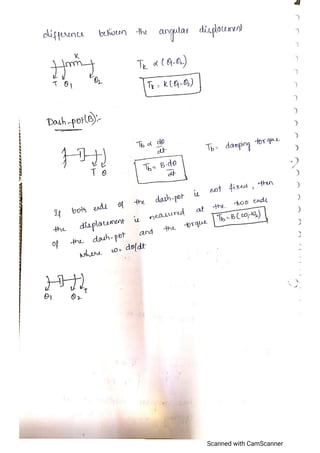 difference between the angular displacement
K
T θ1 θ2
Tk α (θ1-θ2)
Tk = K(θ1-θ2)
Dash-pot(B):-
T θ
Tb α dθ/dt
Tb = damping torque
Tb = B.dθ/dt
If both ends of the dash-pot is not fixed, then
the displacement is measured at the two ends
of the dash-pot and the torque Tb = B(ω1-ω2)
where ω = dθ/dt
θ1 θ2 T
Scanned with CamScanner